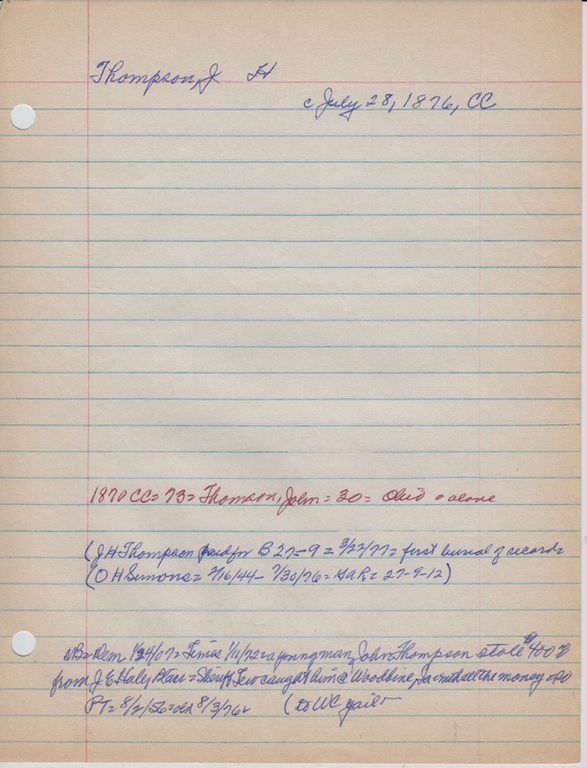 Thompson, J H
c July 28, 1876, CC
1870 CC = 73 = Thomson, John = 30 = Ohio = alone
(J H Thompson paid for B 27-9 = 3/22/77 = first burial of record =
(O H Simons = 2/16/44 - 7/30/76 = GAR = 27-9-12)
NB = Dem 1/24/07 = Times 1/11/72 = a young man, John Thompson stole $400
from J. E. Haley Blair = Sheriff caught him @ Woodbine, Ia with all the money =
PT = 8/2/56 = 8/3/76 (to WC jail